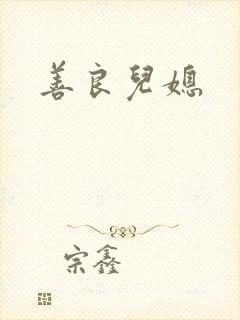 善良兒媳
宗鑫